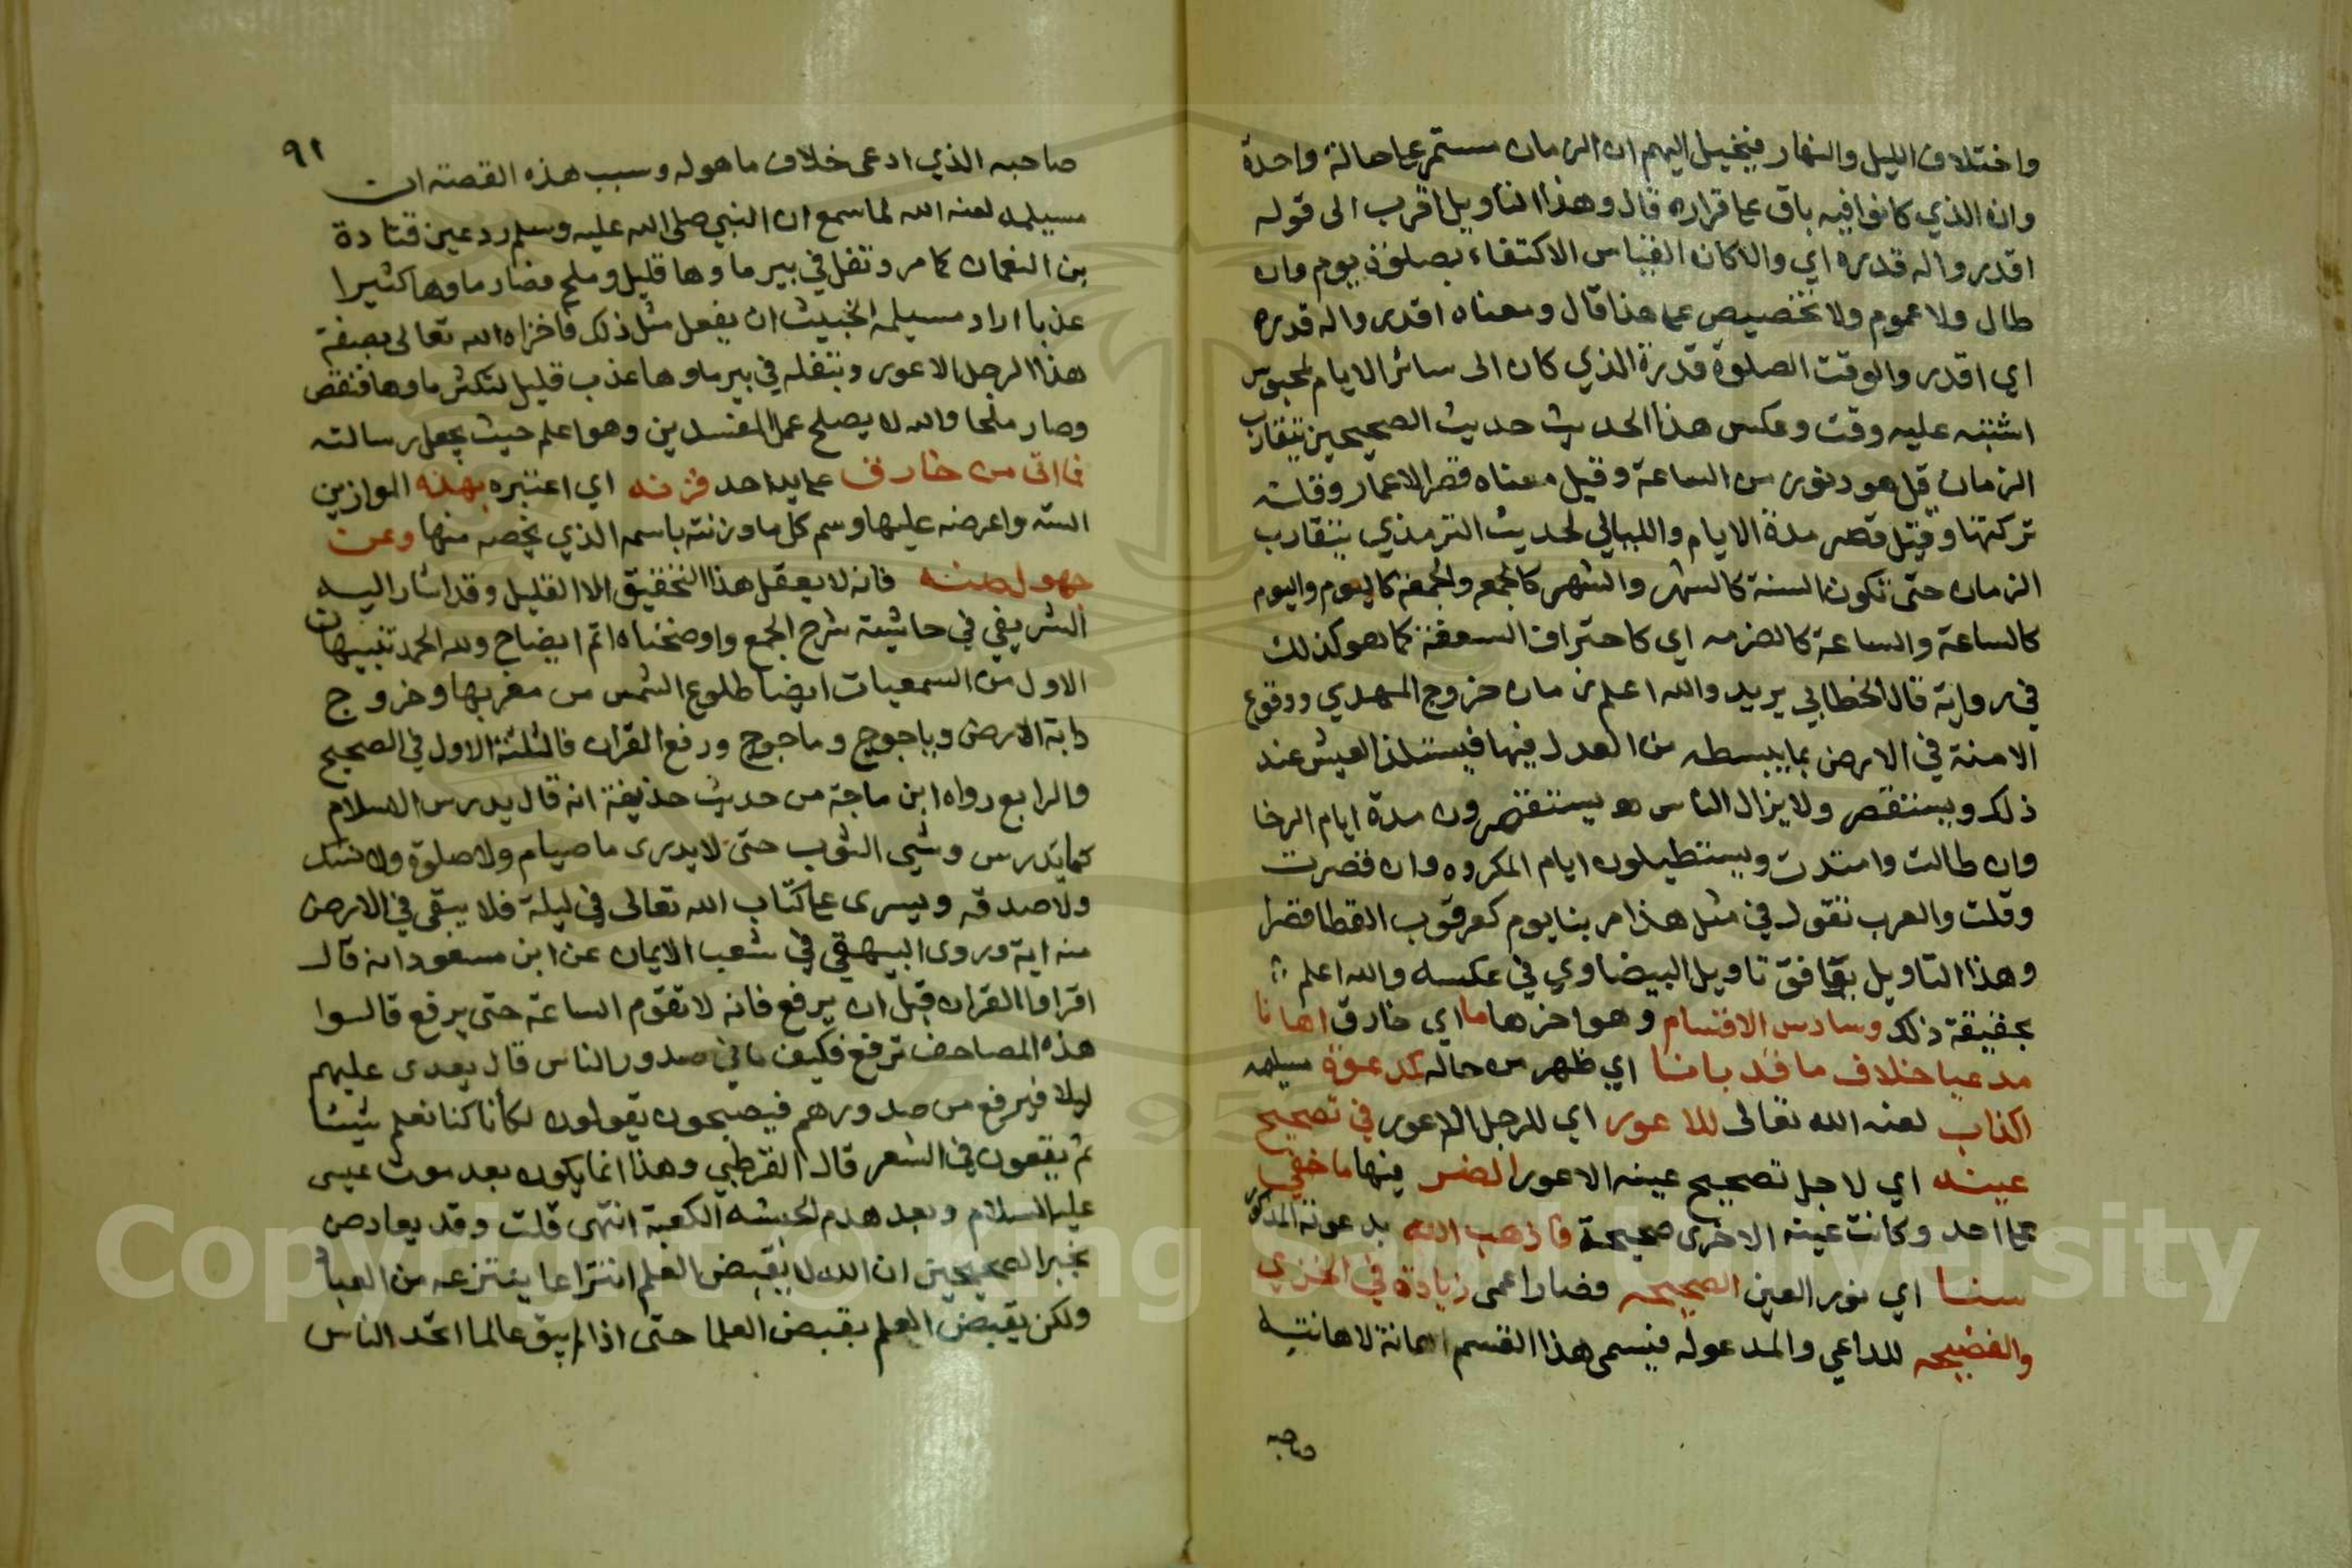 واختلاف الليل والنهار فيخيل اليهم ان الزمان مستمر على حالة واحدة
وان الذي كانوا فيه باق على قراره قال وهذا التاويل اقرب الى قوله
اقدروا له قدره اي والا كان القياس الاكتفاء بصلوة يوم وان
طال ولا عموم ولا تخصيص على هذا قال ومعناه اقدروا له قدره
اي اقدروا لوقت الصلوة قدرة الذي كان الى سائر الايام لمحبوس
اشتبه عليه وقت وعكس هذا الحديث حديث الصحيحين يتقارب
الزمان قيل هو دنوه من الساعة وقيل معناه قصر الاعمار وقلت
تركتها وقيل قصر مدة الايام والليالي لحديث الترمذي يتقارب
الزمان حتى تكون السنة كالشهر والشهر كالجمع والجمعة كاليوم واليوم
كالساعة والساعة كالضرمه اي كاحتراق السعفة كما هو كذلك
في رواية قال الخطابي يريد والله اعلم زمان خروج المهدي ووقوع
الامنة في الارض بما يبسطه من العدل فيها فيستلذ العيش عند
ذلك ويستقصر ولا يزال الناس هو يستقصرون مدة ايام الرخا
وان طالت وامتدت ويستطيلون ايام المكروه وان قصرت
وقلت والعرب تقول في مثل هذا مر بنا يوم كعرقوب القطا قصرا
وهذا التاويل يوافق تاويل البيضاوي في عكسه والله اعلم
بحقيقة ذلك وسادس الاقسام وهو اخرها ما اي خارق اهانا
مدعيا خلاف ما قد بانا اي ظهر من حاله كدعوة مسيلمه
الكذاب لعنه الله تعالى للاعور اي للرجل الاعور في تصحيح
عينه اي لاجل تصحيح عينه الاعور الضر فيها ما خفي
على احد وكانت عينه الاخرى صحيحة فاذهب الله بدعوته المذكورة
سنا اي نور العين الصحيحه فصار اعمى زيادة في الخزي
والفضيحه للداعي والمدعو له فيسمى هذا القسم اهانة لاهانته
صاحبه
٩١
صاحبه الذي ادعى خلاف ما هو له وسبب هذه القصته ان
مسيلمه لعنه الله لما سمع ان النبي صلى الله عليه وسلم رد عين قتادة
بن النعمان كما مر وتفل في بير ماوها قليل وملح فصار ماوها كثيرا
عذبا اراد مسيلمه الخبيث ان يفعل مثل ذلك فاخزاه الله تعالى بصفة
هذا الرجل الاعور وبتفله في بير ماوها عذب قليل لتكثر ماوها فنقص
وصار ملحا والله لا يصلح عمل المفسدين وهو اعلم حيث يجعل رسالته
فما اتى من خارق على يد احد فزنه اي اعتبره بهذه الموازين
السته واعرضه عليها وسم كل ما وزنته باسمه الذي يخصه منها وعن
جهول صنه فانه لا يعقل هذا التحقيق الا القليل وقد اشار اليه
الشريفي في حاشية شرح الجمع واوضحناه اتم ايضاح ولله الحمد تنبيهات
الاول من السمعيات ايضا طلوع الشمس من مغربها وخروج
دابة الارض وياجوج وماجوج ورفع القران فالثلثة الاول في الصحيح
والرابع رواه ابن ماجة من حديث حذيفة انه قال يدرس الاسلام
كما يدرس وشي الثوب حتى لا يدرى ما صيام ولا صلوة ولا نسك
ولا صدقه ويسرى على كتاب الله تعالى في ليلة فلا يبقى في الارض
منه اية وروى البيهقي في شعب الايمان عن ابن مسعود انه قال
اقراوا القران قبل ان يرفع فانه لا تقوم الساعة حتى يرفع قالوا
هذه المصاحف ترفع فكيف ما في صدور الناس قال يعدى عليهم
ليلا فيرفع من صدورهم فيصبحون يقولون لكأنا كنا نعلم شيئا
ثم يقعون في الشعر قال القرطبي وهذا انما يكون بعد موت عيسى
عليه السلام وبعد هدم الحبشه الكعبة انتهى قلت وقد يعارض
بخبر الصحيحين ان الله لا يقبض العلم انتزاعا ينتزعه من العباد
ولكن يقبض العلم بقبض العلما حتى اذا لم يبق عالما اتخد الناس
Copyright © King Saud University